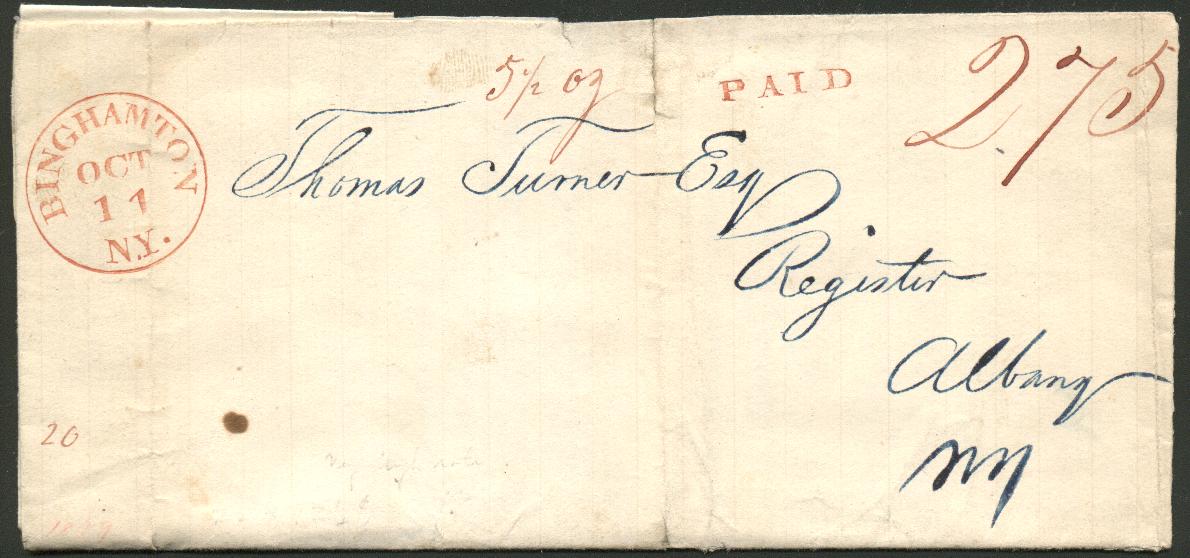 BINGHAMTON
OCT
11
N.Y.
5 1/2 oz
PAID
275
Thomas Turner Esq
Register
Albany
NY
20